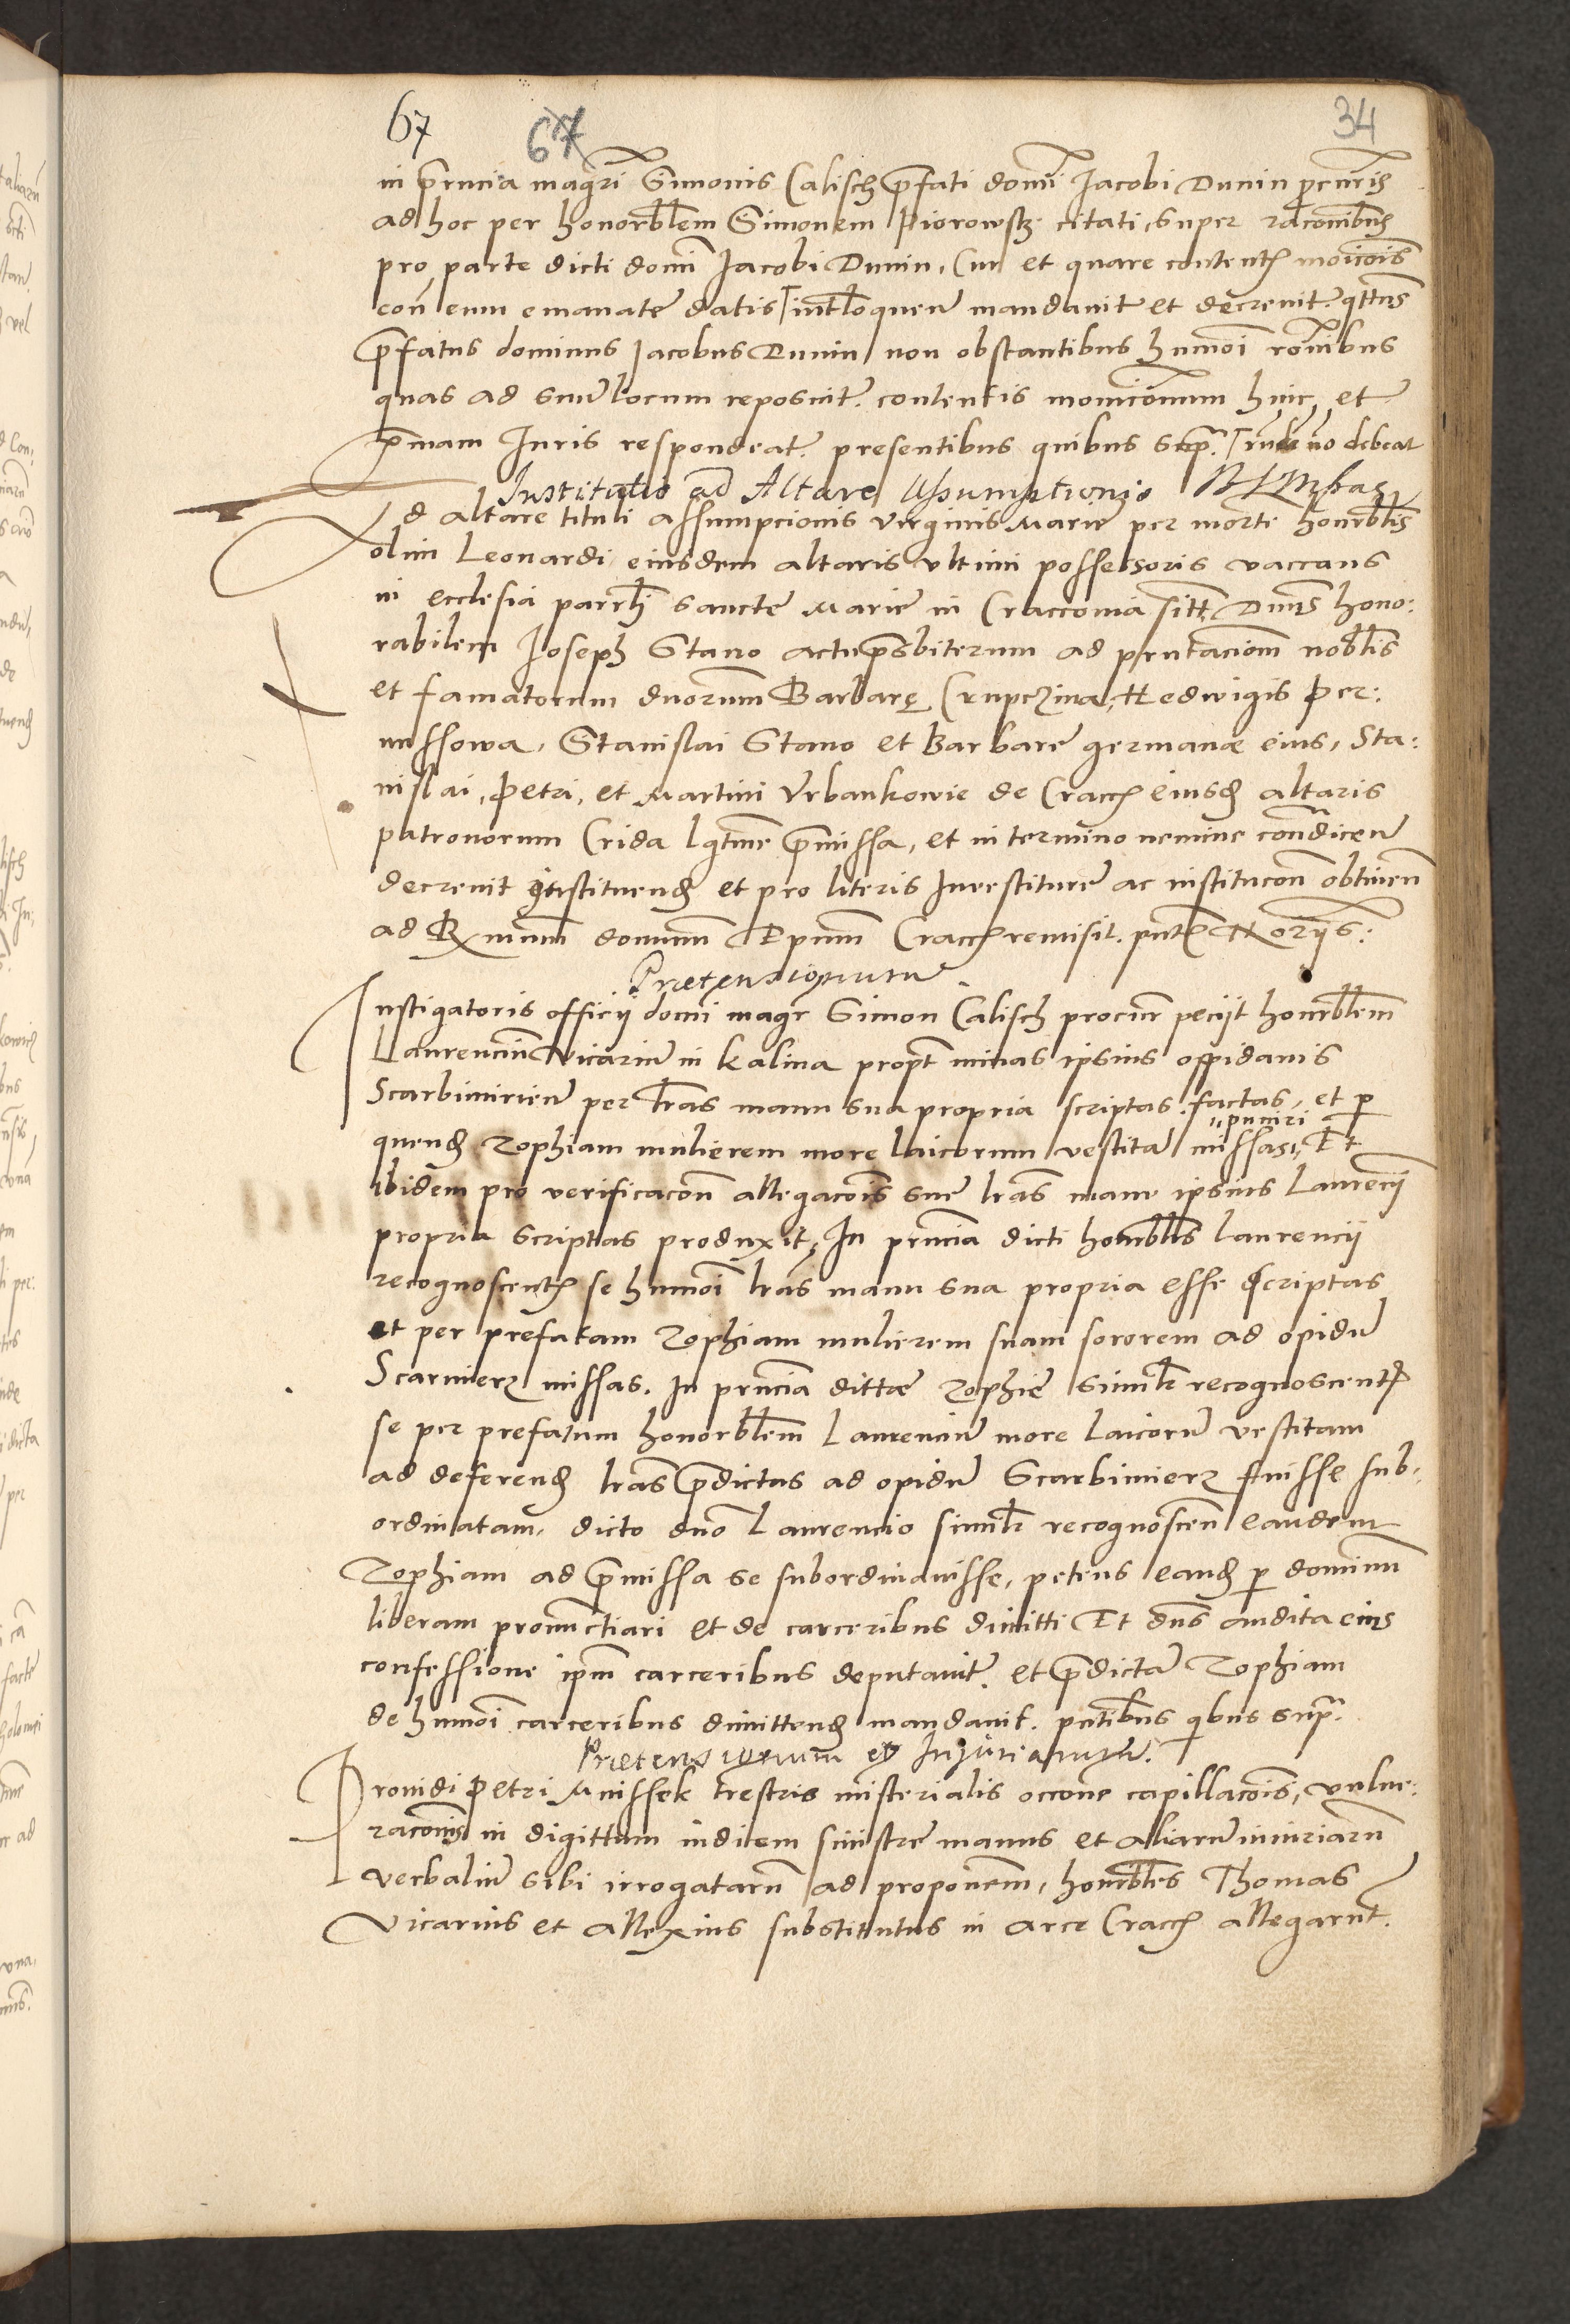 67 67 34
in p̄rncia magr̄i Simonis Calisch p̄fati domī Jacobi Dunin p̱cur̄is
ad hoc per honorb̄lem Simonem Piorowsk citati, super rac̄onibus
pro parte dicti domī Jacobi Dunin, Cur et quare content̄ monic̄ois
con̄ eum emanate datis int̄loquen̄ mandavit et decrevit. qt̄tus
p̄fatus dominus Jacobus Dunin non obstantibus hm̄oi ron̄ibus
quas ad suū locum reposuit. contentis monic̄onum huic, et
Juris respondeat. presentibus quibus sup̄.
Institutio ad Altare Assumptionis
Ad altare tituli assumpcionis virginis Marie per mortē honorb̄lis
olim Leonardi eiusdem altaris ultimi possessoris vaccans
in ecclesia parrl̄i sancte Marie in Craccovia sitt̄ Dn̄us hono:
rabilem Joseph Stano actu p̄sbiterum ad pn̄tacion̄m nobl̄is
et famatorum duorum Barbarę Crupczina, Hedwigis Per:
nussowa, Stanislai Stano et Barbarē germanæ eius, Sta:
nislai, Petri, et Martini Urbankowie de Cracc̄ eiusd̄ altaris
patronorum Crida lgt̄ime p̄missa, et in termino nemine con̄dicen̄
decrevit instituend̄ et pro literis Investiture ac instituc̄on̄ obtinen̄
ad Rx̄mum domnum Ep̄um Cracc̄ remisit. pn̄t̄ Noriis:
Prætensionum
Instigatoris officij domī magr̄ Simon Calisch procur̄ peciit honorb̄lem
Laurenciū Vicariū in kalina propt̄ minas ipsius oppidanis
Scarbimirien̄ per lr̄as manu sua propria scriptas factas, et p̱
puniri
quend̄ Zophiam mulierem more laicorum vestitā missas, Et
ibidem pro verificac̄on̄ allegac̄ois sue lr̄as manu ipsius Laurencij
propria scriptas produxit, In prn̄cia dicti honorb̄lis Laurencij
recognoscent̄ se hm̄oi lr̄as manu sua propria esse scriptas
et per prefatam Zophiam mulierem suam sororem ad opidū
Scarmierz missas. In prn̄cia dittæ Zophie simil̄r recognoscent̄
se per prefatum honorb̄lem Laurenciū more laicorū vestitam
ad deferend̄ lr̄as p̄dictas ad opidū Scarbimierz fuisse sub,
ordinatam, dicto dn̄o Laurencio simil̄r recognoscen̄ eandem
Zophiam ad p̄missa se subordinavisse, petens eand̄ p̱ dominū
liberam pronunctiari et de carceribus dimitti Et dn̄s audita eius
confessione ipm̄ carceribus deputavit. et p̄dictā Zophiam
de hm̄oi carceribus dimittend̄ mandavit. pn̄tibus qibus sup̄.
Prætensionum et Injuriarum.
Providi Petri Mnissek trestris misterialis occ̄one capillac̄ois, vulne:
rac̄onis in digittum indicem sinistre manus et aliarū iniuriarū
verbaliū sibi irrogatarū ad proponen̄m, honorb̄les Thomas
Vicarius et Allexius substitutus in arce Cracc̄ allegarūt.